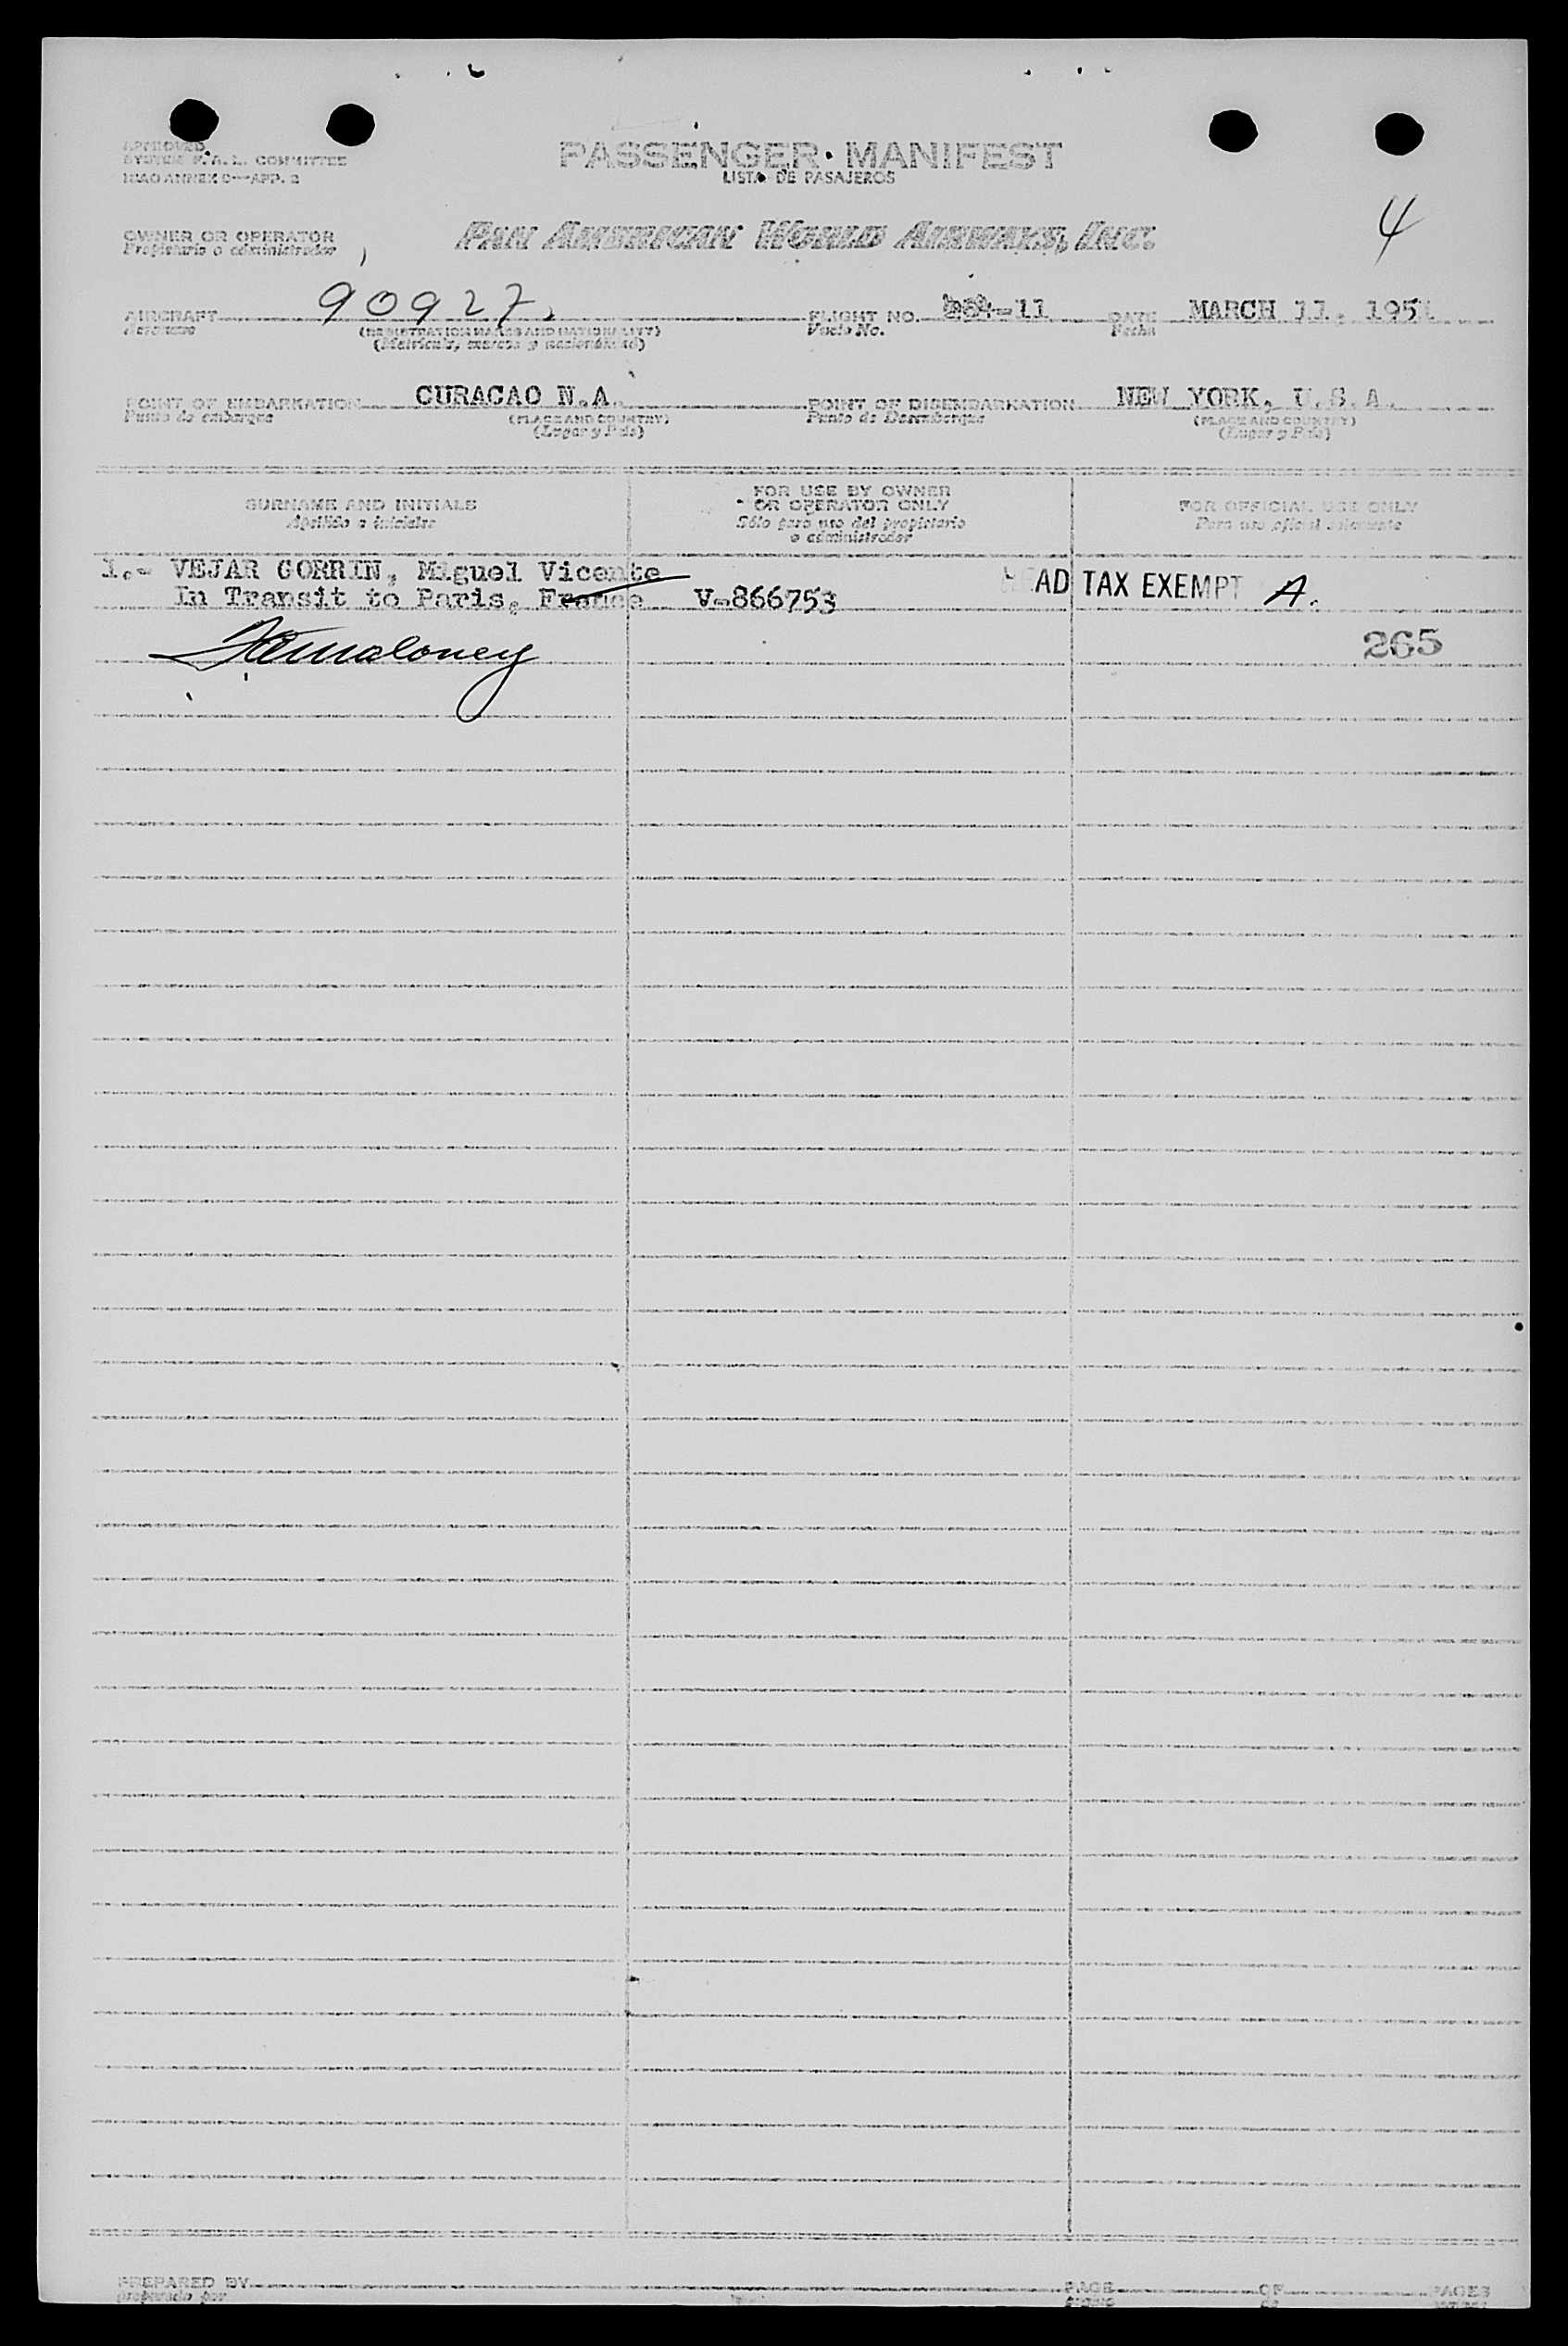 APPROVED
SYSTEM F.A.L. COMMITTEE
ICAO ANNEX 9—APP. 2
PASSENGER MANIFEST
LISTA DE PASAJEROS
4
OWNER OR OPERATOR
Propietario o administrador
PAN AMERICAN WORLD AIRWAYS, INC.
AIRCRAFT 90927
Aeronave
(REGISTRATION MARKS AND NATIONALITY)
(Matrícula, marcas y nacionalidad)
FLIGHT NO. -11
Vuelo No.
DATE MARCH 11, 1951
Fecha
POINT OF EMBARKATION CURACAO N.A.
Punto de embarque
(PLACE AND COUNTRY)
(Lugar y País)
POINT OF DISEMBARKATION NEW YORK, U.S.A.
Punto de Desembarque
(PLACE AND COUNTRY)
(Lugar y País)
SURNAME AND INITIALS
Apellido e iniciales
FOR USE BY OWNER
OR OPERATOR ONLY
Sólo para uso del propietario
o administrador
FOR OFFICIAL USE ONLY
Para uso oficial solamente
1.- VEJAR GORRIN, Miguel Vicente
In Transit to Paris, France V-866753 HEAD TAX EXEMPT A.
265
PREPARED BY
preparado por
PAGE OF PAGES